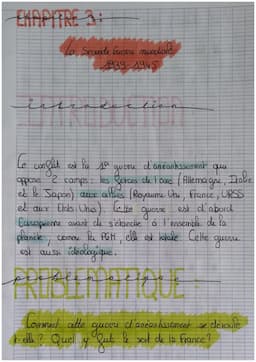 CHAPITRE 3 :
La seconde Guerre mondiale
1939-1945
introduction
INTRODUCTION
Ce conflit est la 1° guerre d'anéantissement qui
oppose 2 camps : les forces de l'axe (Allemagne, Italie
et le Japon) aux alliés (Royaume-Uni, France, URSS
et aux Etats Unis). Cette guerre est d'abord
Européenne avant de s'étendre à l'ensemble de la
planète, comme la PGM, elle est totale. Cette guerre
est aussi idéologique.
problématique
PROBLEMATIQUE :
Comment cette guerre d'anéantissement se déroule
t-elle ? Quel y fut le sort de la France ?